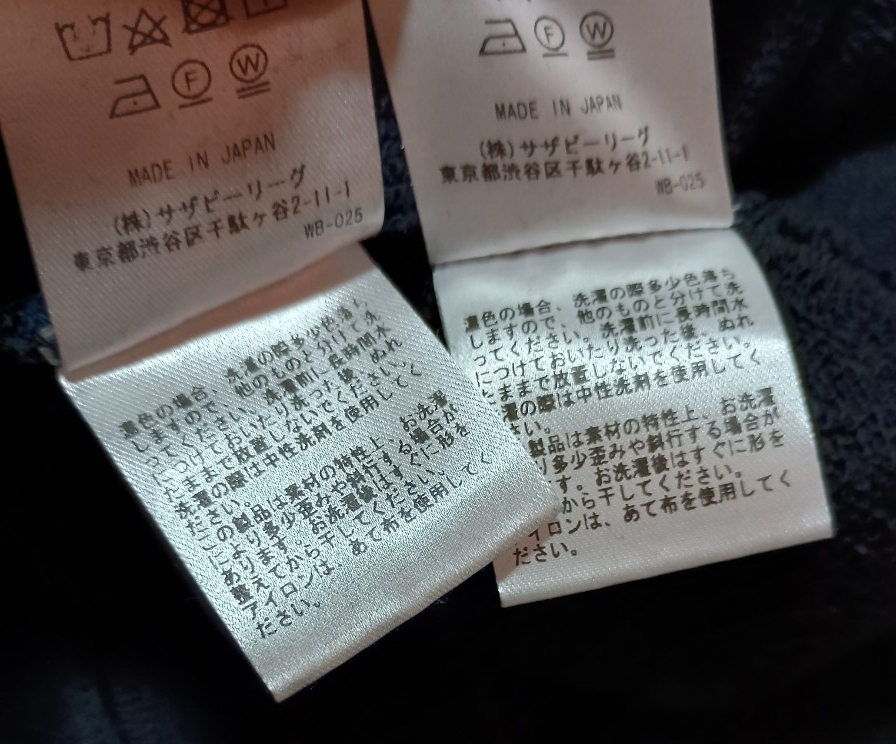 F W
MADE IN JAPAN
(株)サザビーリーグ
東京都渋谷区千駄ヶ谷2-11-1
WB-025
濃色の場合、洗濯の際多少色落ち
しますので、他のものと分けて洗
ってください。洗濯前に長時間水
につけておいたり洗った後、ぬれ
たままで放置しないでください。
洗濯の際は中性洗剤を使用してく
ださい。
この製品は素材の特性上、お洗濯
により多少歪みや斜行する場合が
あります。お洗濯後はすぐに形を
整えてから干してください。
アイロンは、あて布を使用してく
ださい。
F W
MADE IN JAPAN
(株)サザビーリーグ
東京都渋谷区千駄ヶ谷2-11-1
WB-025
濃色の場合、洗濯の際多少色落ち
しますので、他のものと分けて洗
ってください。洗濯前に長時間水
につけておいたり洗った後、ぬれ
たままで放置しないでください。
濯の際は中性洗剤を使用してく
さい。
製品は素材の特性上、お洗濯
り多少歪みや斜行する場合が
す。お洗濯後はすぐに形を
から干してください。
イロンは、あて布を使用してく
ださい。